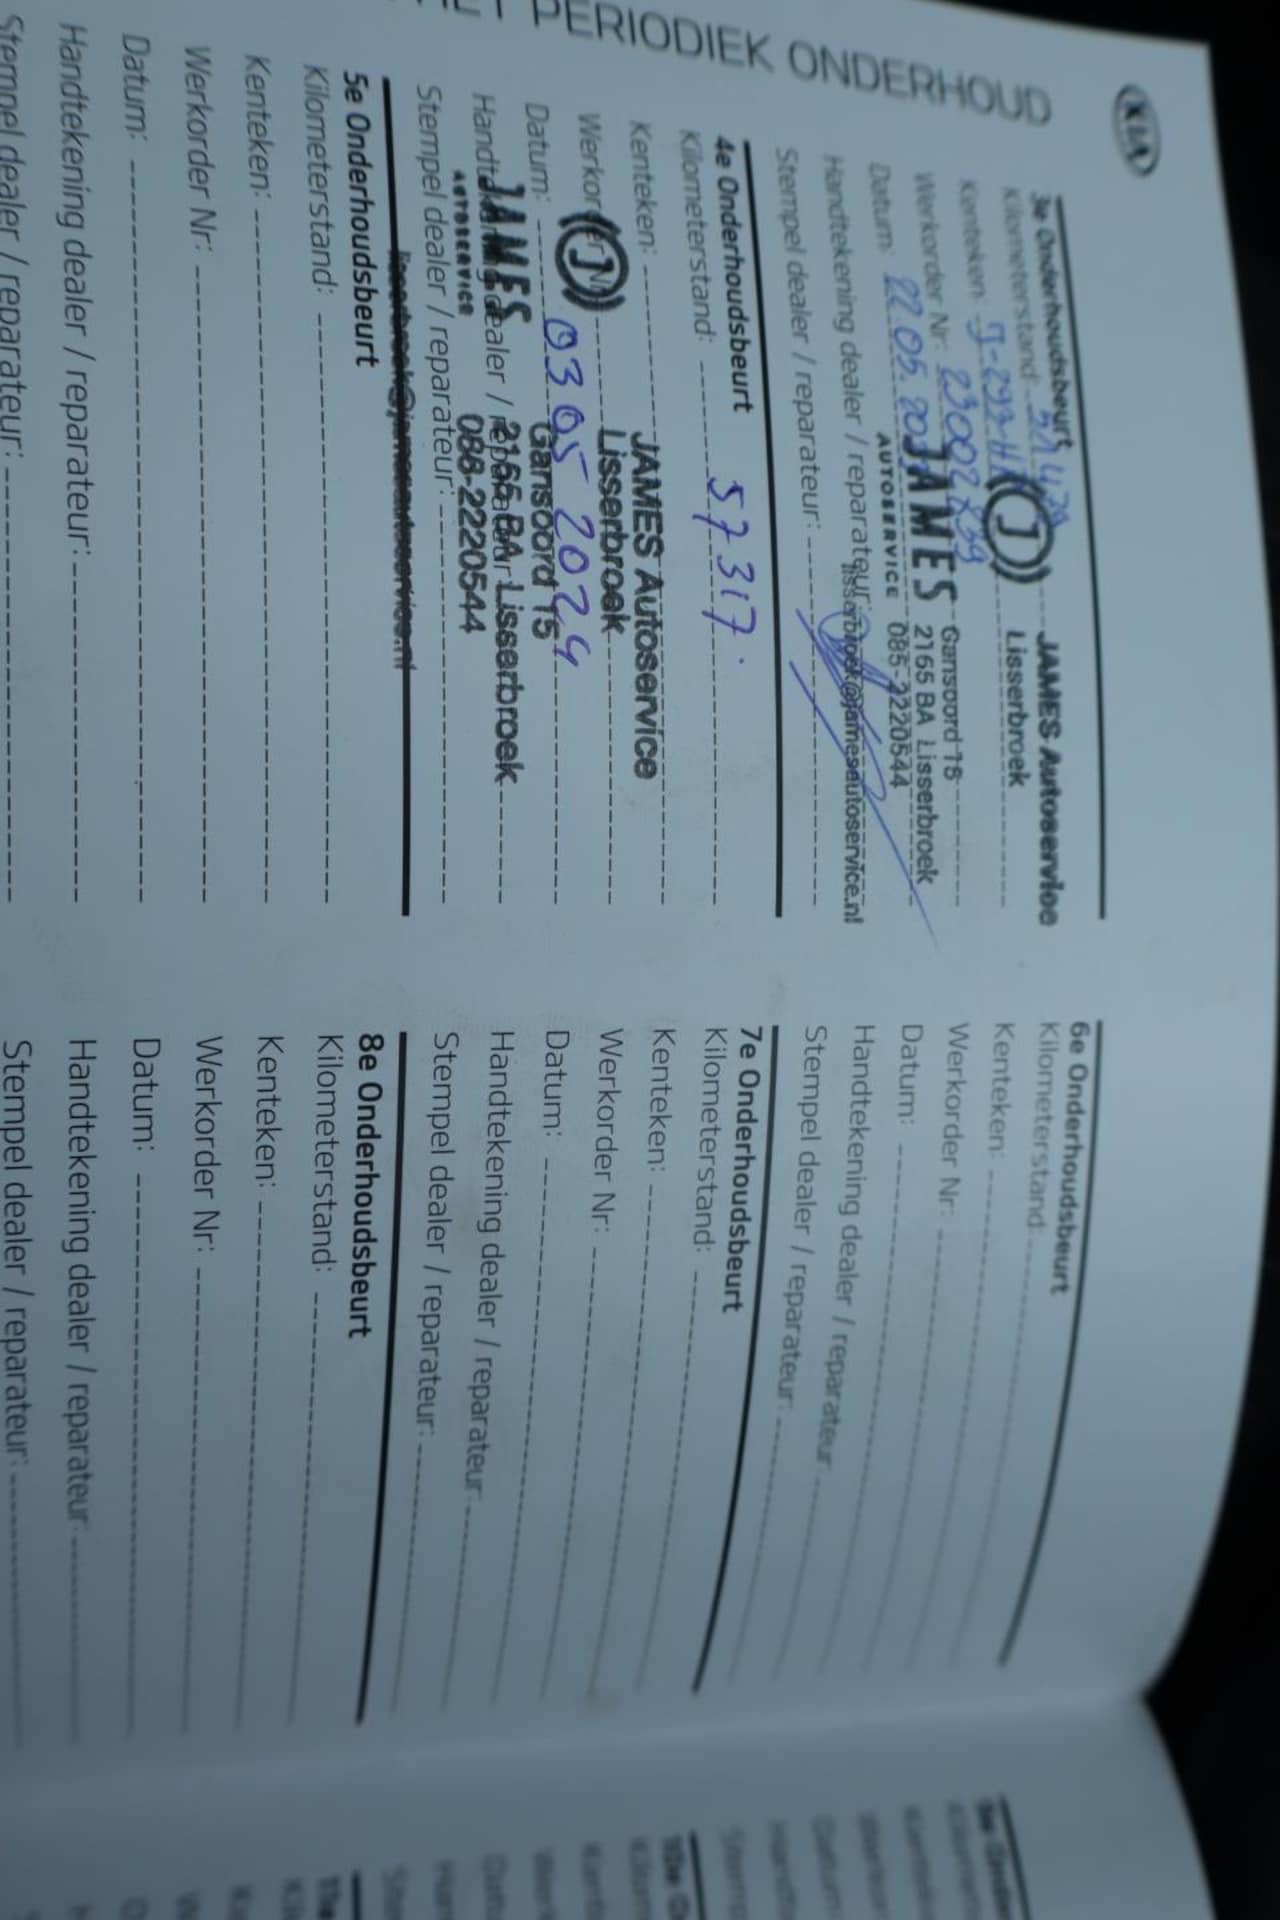 KIA
PERIODIEK ONDERHOUD
3e Onderhoudsbeurt
Kilometerstand:
Kenteken:
Werkorder Nr:
Datum: 22.05.
Handtekening dealer / reparateur:
Stempel dealer / reparateur:
J
JAMES
AUTOSERVICE
JAMES Autoservice
Lisserbroek
Gansoord 15
2165 BA Lisserbroek
085-2220544
lisserbroek@jamesautoservice.nl
4e Onderhoudsbeurt
Kilometerstand: 57317.
Kenteken:
Werkorder Nr:
Datum: 03 05 2024
Handtekening dealer / reparateur:
Stempel dealer / reparateur:
J
JAMES
AUTOSERVICE
JAMES Autoservice
Lisserbroek
Gansoord 15
2165 BA Lisserbroek
088-2220544
lisserbroek@jamesautoservice.nl
5e Onderhoudsbeurt
Kilometerstand:
Kenteken:
Werkorder Nr:
Datum:
Handtekening dealer / reparateur:
Stempel dealer / reparateur:
6e Onderhoudsbeurt
Kilometerstand:
Kenteken:
Werkorder Nr:
Datum:
Handtekening dealer / reparateur:
Stempel dealer / reparateur:
7e Onderhoudsbeurt
Kilometerstand:
Kenteken:
Werkorder Nr:
Datum:
Handtekening dealer / reparateur:
Stempel dealer / reparateur:
8e Onderhoudsbeurt
Kilometerstand:
Kenteken:
Werkorder Nr:
Datum:
Handtekening dealer / reparateur:
Stempel dealer / reparateur: